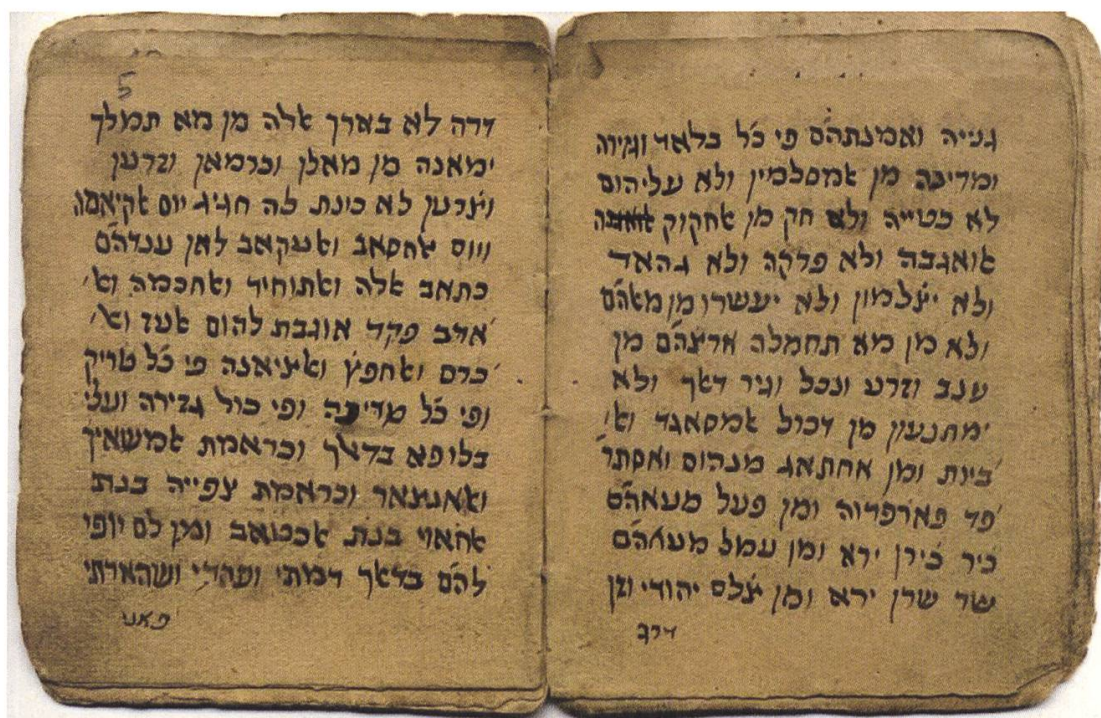 געייה ואמינתהׄם פי כׄל בלאד וגזירה
ומדינה מן אמסלמין ולא עליהום
לא כטייה ולא חק מן אחקוק
אואגבה ולא פרקה ולא גהאד
ולא יצׄלמון ולא יעשרו מן מאהׄם
ולא מן מא תחמלה ארצׄהׄם מן
ענב וזרע ונכל וגיר דאך ולא
ימתנעון מן דכול אמסאגד וא׳
׳בינת ומן אחתאג מנהום ואסתר׳
׳פד פארפדוה ומן פעל מעאהׄם
כיר כׄירן ירא ומן עמל מעאהׄם
שר שרן ירא ומן צׄלם יהודי וזן
דרה
5
דרה לא בארך אלה מן מא תמלך
ימאנה מן מאלן וכרמאן וזרען
וצׄרען לא כונת לה חגיג יום אקיאמה
ויום אחסאב ואעקאב לאן ענדהׄם
כתאב אלה ואתוחיד ואחכמה וא׳
׳אדב פקד אוגבת להום אעז וא׳
׳כרם ואחפץׄ ואציאנה פי כׄל טריק
ופי כׄל מדינה ופי כול גזירה ועלי
בלופא בדאך וכראמת אמשאיך
ואאנצאר וכראמת צפייה בנת
אחאוי בנת אכטאב ומן לם יופי
להׄם בדאך דמתי ועהדי ושהאדתי
פאנ